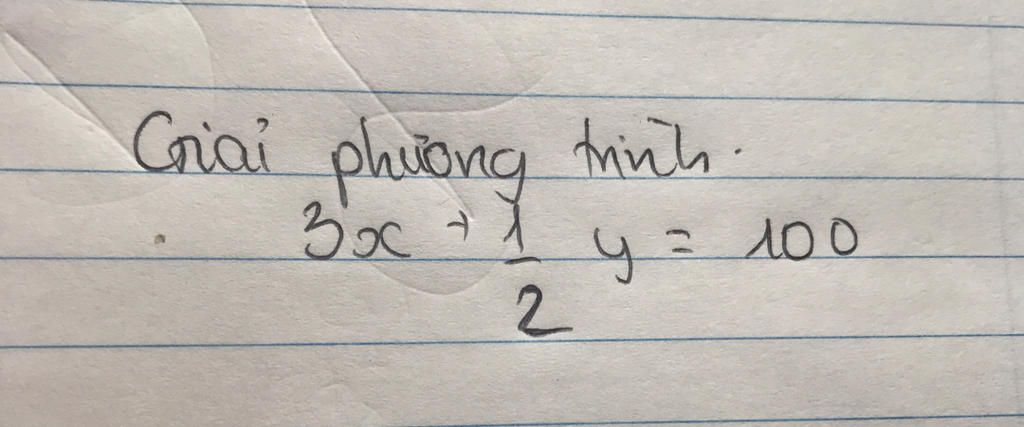 Giải phương trình.
3x + 1/2 y = 100